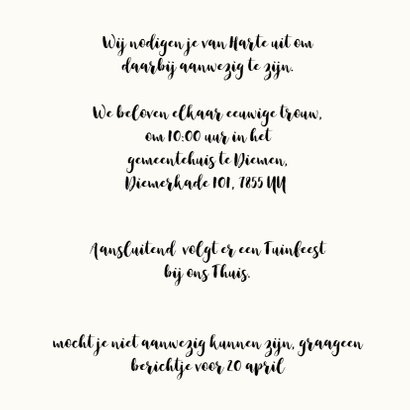 Wij nodigen je van Harte uit om
daarbij aanwezig te zijn.
We beloven elkaar eeuwige trouw,
om 10:00 uur in het
gemeentehuis te Diemen,
Diemerkade 101, 7855 YY
Aansluitend volgt er een Tuinfeest
bij ons Thuis.
mocht je niet aanwezig kunnen zijn, graageen
berichtje voor 20 april